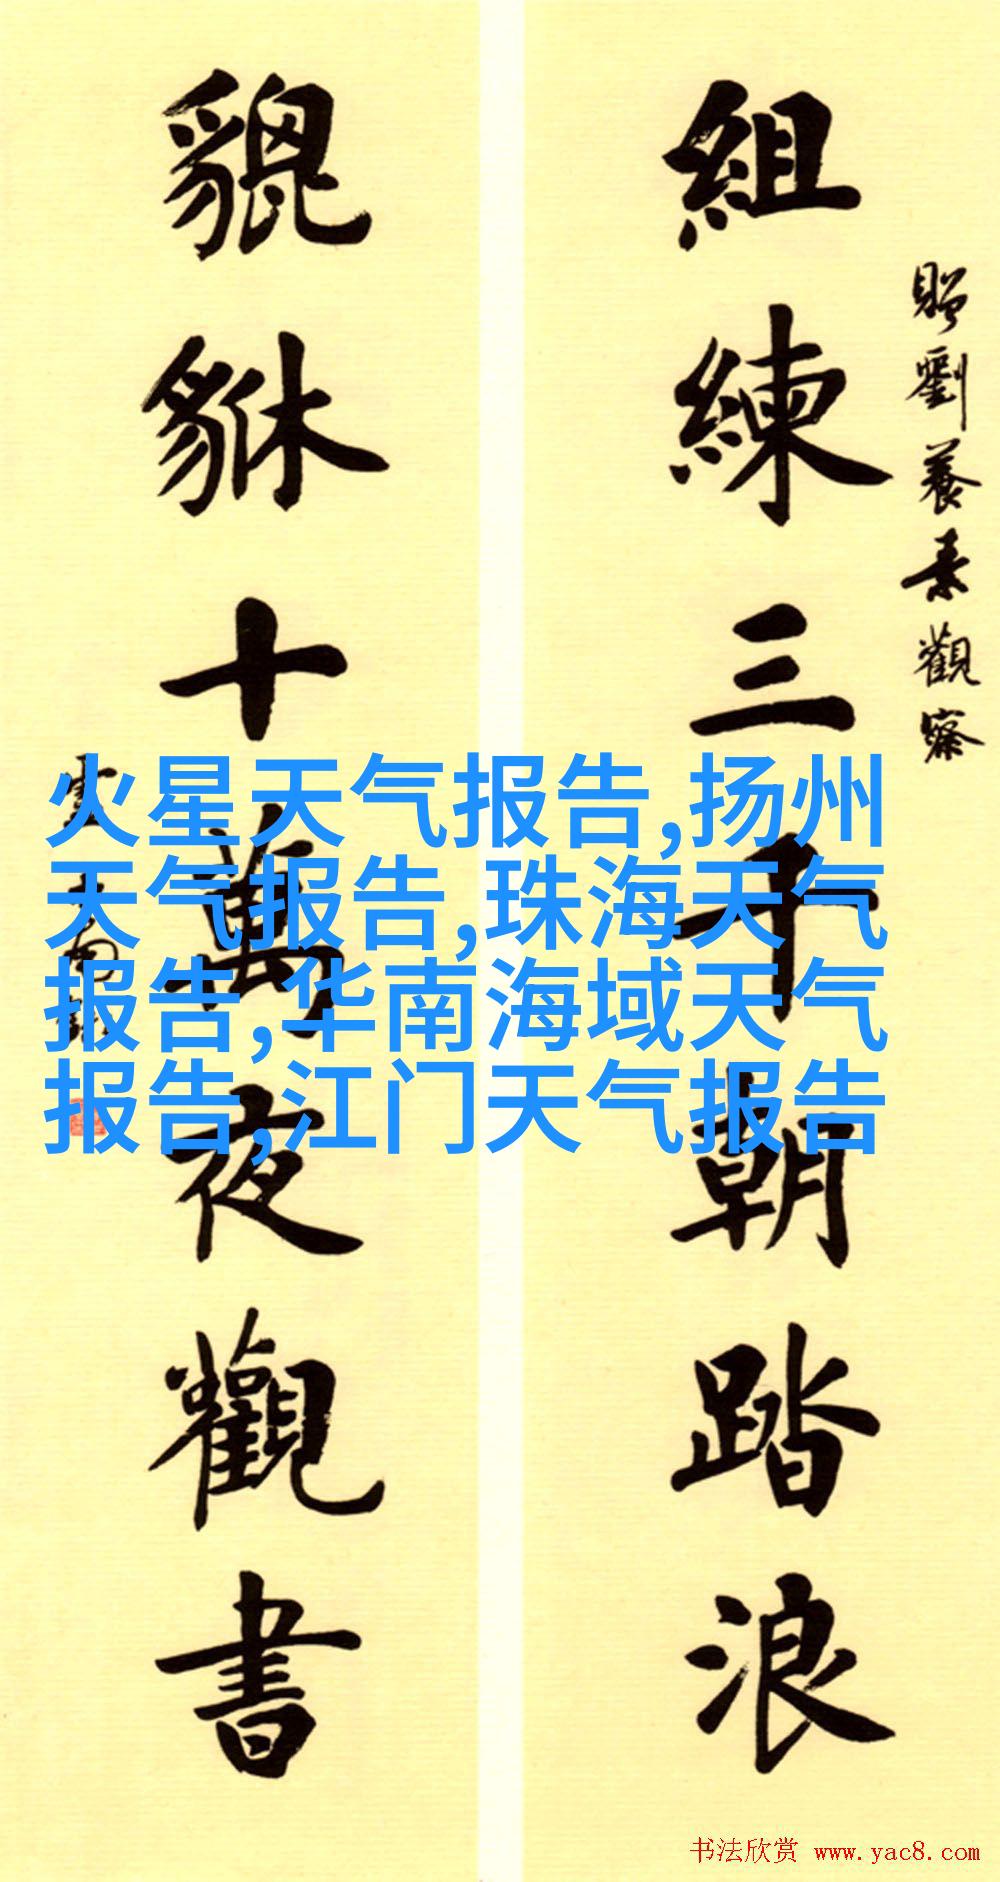 贈劉養素觀察
組練三千朝踏浪
貔貅十萬夜觀書
火星天气报告,扬州
天气报告,珠海天气
报告,华南海域天气
报告,江门天气报告
书法欣赏 www.yac8.com